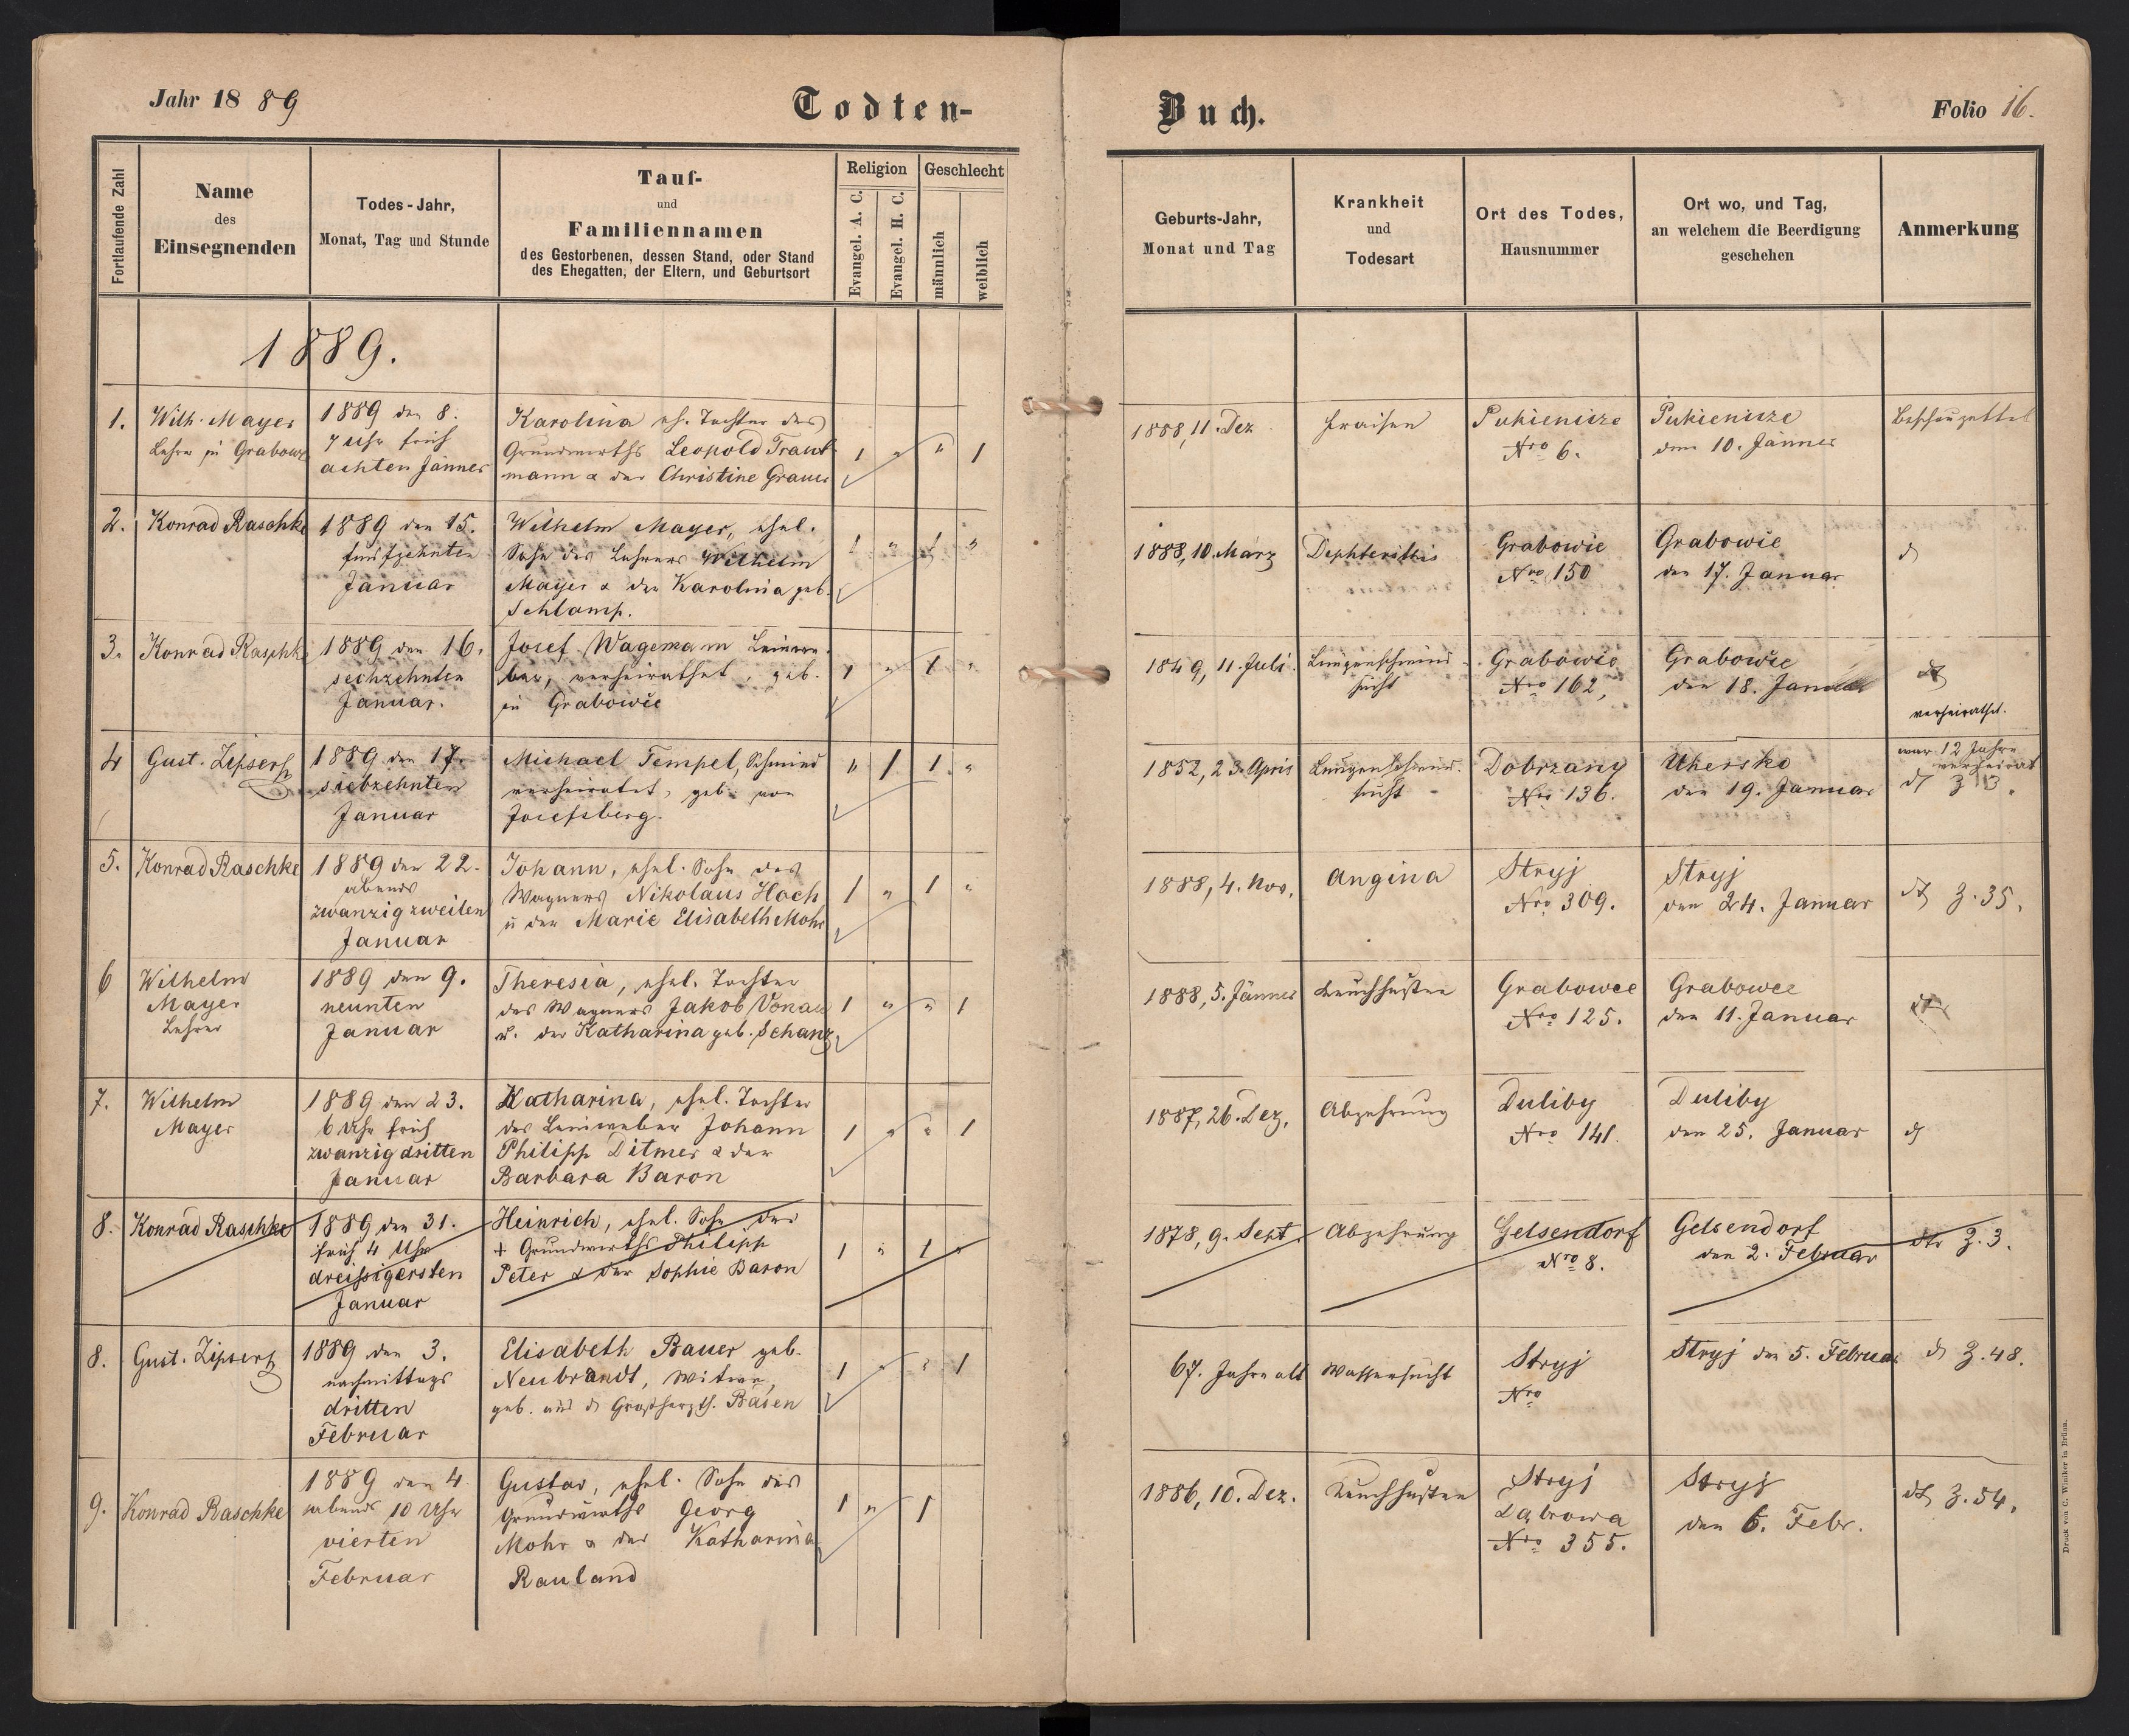 Jahr 1889
Todten-
Buch.
Folio 16.
Fortlaufende Zahl
Name
des
Einsegnenden
Todes-Jahr,
Monat, Tag und Stunde
Tauf-
und
Familiennamen
des Gestorbenen, dessen Stand, oder Stand
des Ehegatten, der Eltern, und Geburtsort
Religion
Evangel. A. C.
Evangel. H. C.
Geschlecht
männlich
weiblich
Geburts-Jahr,
Monat und Tag
Krankheit
und
Todesart
Ort des Todes,
Hausnummer
Ort wo, und Tag,
an welchem die Beerdigung
geschehen
Anmerkung
1889.
1.
Wilh. Mayer
Lehrer in Grabowe
1889 den 8.
7 Uhr früh
achten Jänner
Karolina eh. Tochter des
Grundwirths Leopold Traut
mann & der Christine Grauer
1 " " 1
1888, 11. Dez
Fraisen
Pukienicze
Nro 6.
Pukienicze
den 10. Jänner
Beschauzettel
2.
Konrad Raschke
1889 den 15.
fünfzehnten
Januar
Wilhelm Mayer, ehel.
Sohn des Lehrers Wilhelm
Mayer & der Karolina geb.
Schlamp.
1 " 1 "
1888, 10. März
Diphteritis
Grabowie
Nro 150
Grabowie
den 17. Januar
3.
Konrad Raschke
1889 den 16.
sechzehnten
Januar.
Josef Wagemann Leinwe
ber, verheirathet, geb.
in Grabowie
1 " 1 "
1849, 11. Juli.
Lungenschwind
sucht
Grabowie
Nro 162,
Grabowie
den 18. Januar
verheirathet.
4
Gust. Zipserp
1889 den 17.
siebzehnten
Januar
Michael Tempel, Schmied
verheiratet, geb. von
Josefsberg.
" 1 1 "
1852, 23. April
Lungenschwind.
sucht
Dobrzany
Nro 136.
Uhersko
den 19. Januar
war 12 Jahre
verheirat
Z 3.
5.
Konrad Raschke
1889 den 22.
abends
zwanzigzweiten
Januar
Johann, ehel. Sohn des
Wagners Nikolaus Hoch
u der Marie Elisabeth Mohr
1 " 1 "
1888, 4. Nov.
Angina
Stryj
Nro 309.
Stryj
den 24. Januar
Z. 35.
6
Wilhelm
Mayer
Lehrer
1889 den 9.
neunten
Januar
Theresia, ehel. Tochter
des Wagners Jakob Vonau
u. der Katharina geb. Schanz
1 " " 1
1888, 5. Jänner
Keuchhusten
Grabowce
Nro 125.
Grabowce
den 11. Januar
7.
Wilhelm
Mayer
1889 den 23.
6 Uhr früh
zwanzigdritten
Januar
Katharina, ehel. Tochter
des Leinweber Johann
Philipp Ditmer & der
Barbara Baron
1 " " 1
1887, 26. Dez.
Abzehrung
Duliby
Nro 141.
Duliby
den 25. Januar
8.
Konrad Raschke
1889 den 31.
früh 4 Uhr
dreissigersten
Januar
Heinrich, ehel. Sohn des
+ Grundwirths Philipp
Peter & der Sophie Baron
1 " 1 "
1878, 9. Sept.
Abzehrung
Gelsendorf
Nro 8.
Gelsendorf
den 2. Februar
Z. 3.
8.
Gust. Zipserp
1889 den 3.
nachmittags
dritten
Februar
Elisabeth Bauer geb.
Neubrandt, Witwe,
geb. aus d. Großherzth. Baden
1 " " 1
67. Jahre alt
Wassersucht
Stryj
Nro
Stryj den 5. Februar
Z. 48.
9.
Konrad Raschke
1889 den 4
abends 10 Uhr
vierten
Februar
Gustav, ehel. Sohn des
Grundwirths Georg
Mohr & der Katharina
Rauland
1 " 1
1886, 10. Dez.
Keuchhusten
Stryj
Dąbrowa
Nro 355.
Stryj
den 6. Febr.
Z. 54.
Druck von C. Winiker in Brünn.